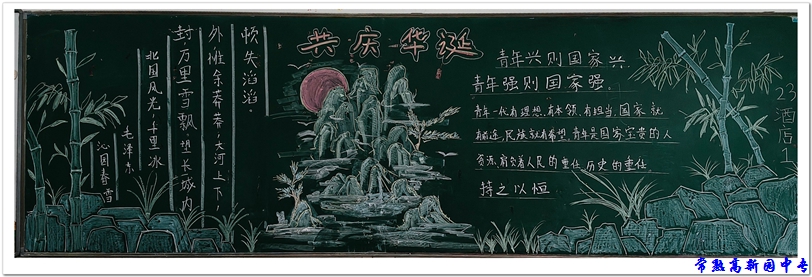 共庆华诞
沁园春雪
毛泽东
北国风光,千里冰
封,万里雪飘,想长城内
外,惟余莽莽,大河上下,
顿失滔滔。
青年兴则国家兴,
青年强则国家强。
青年一代有理想,有本领,有担当,国家就
有前途,民族就有希望,青年是国家宝贵的人
资源,肩负着人民的重任,历史的重任
持之以恒
23酒店1
常熟高新园中专